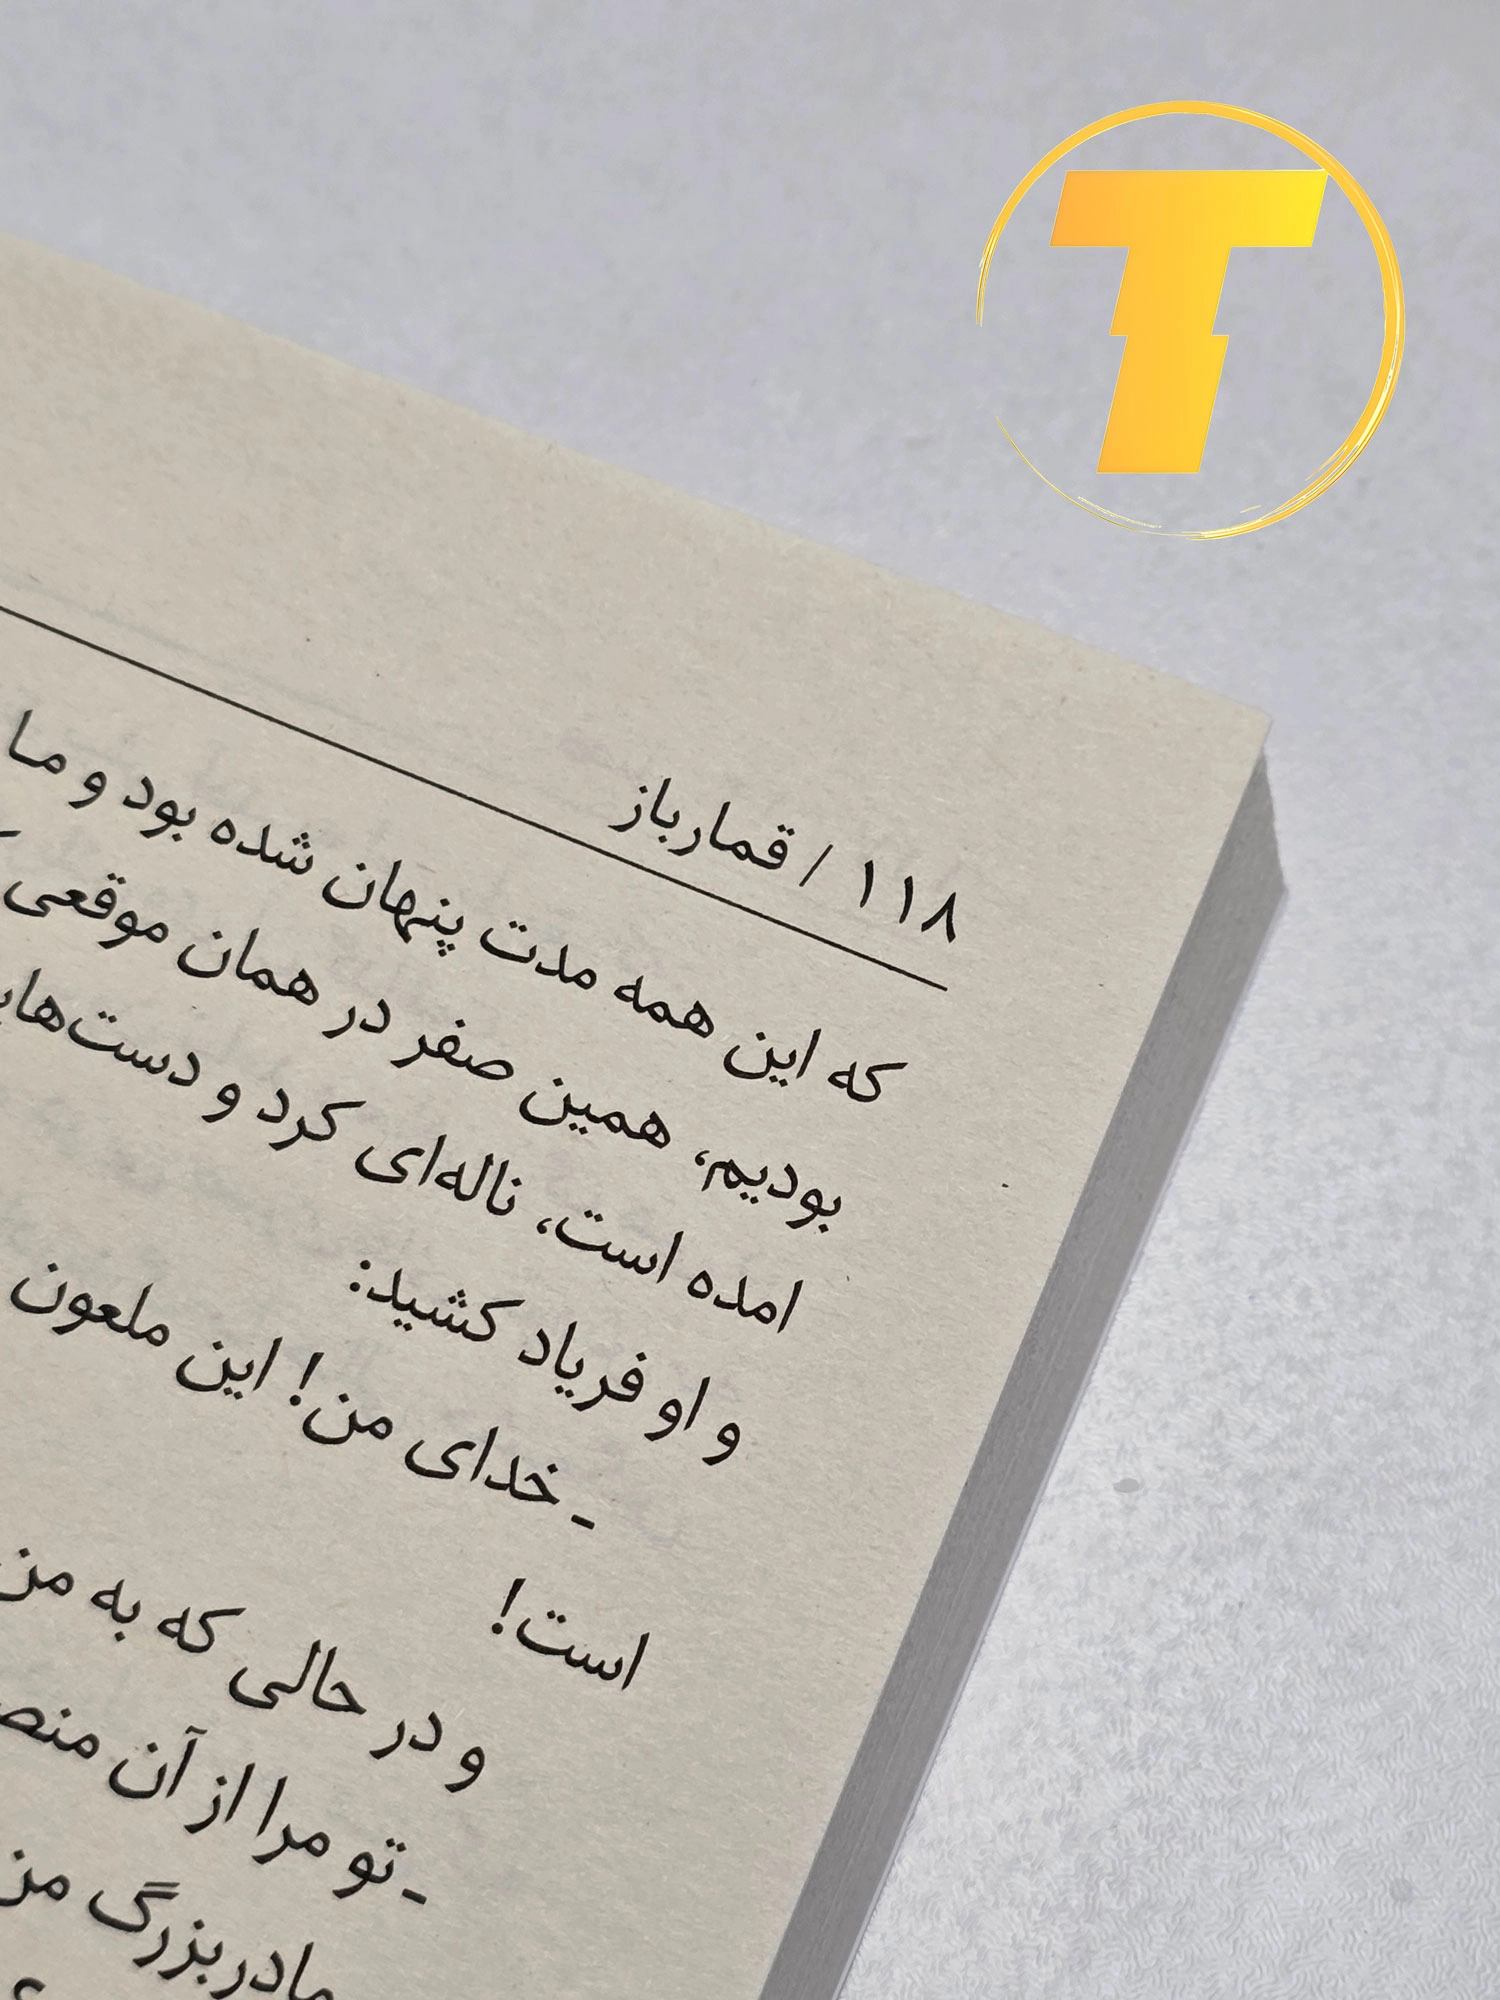 T
۱۱۸ / قمارباز
که این همه مدت پنهان شده بود و ما
بودیم، همین صفر در همان موقعی
امده است، ناله‌ای کرد و
و او فریاد کشید:
ـ خدای من! این ملعون
است!
و در حالی که به من
ـ تو مرا از آن
مادربزرگ من